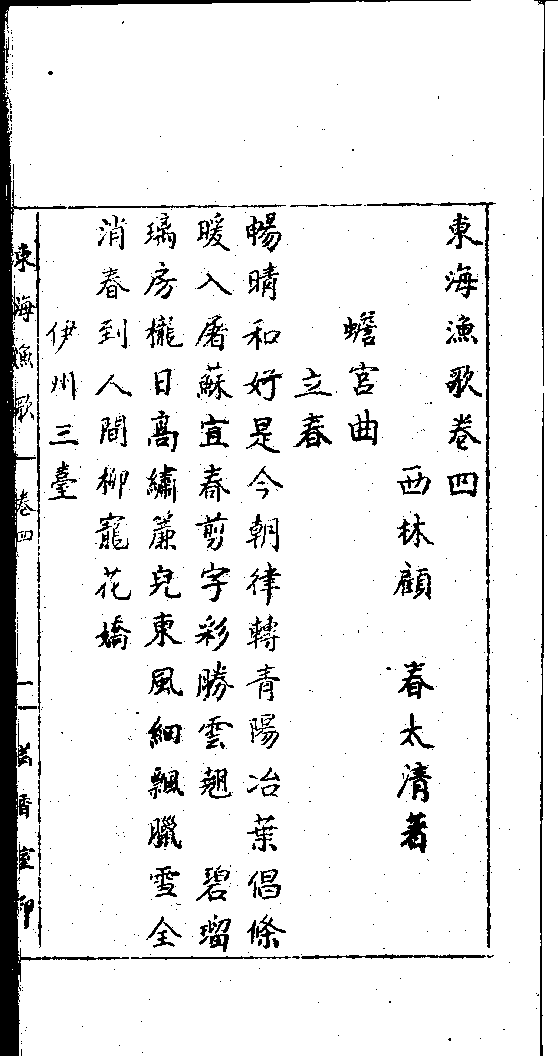 東海漁歌卷四
西林顧　春太清著
蟾宮曲
立春
暢晴和好是今朝律轉青陽冶葉倡條
暖入屠蘇宜春剪字彩勝雲翹　碧瑠
璃房櫳日高繡簾兒東風細飄臘雪全
消春到人間柳寵花嬌
伊州三臺
東海漁歌
卷四
一